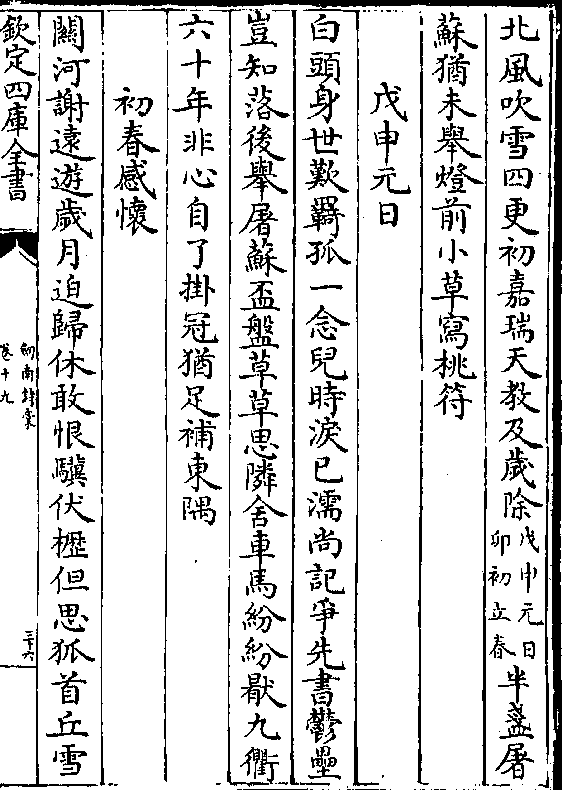 北風吹雪四更初嘉瑞天教及歲除戊申元日卯初立春半盞屠
蘇猶未舉燈前小草寫桃符
戊申元日
白頭身世歎羇孤一念兒時淚已濡尚記爭先書鬱壘
豈知落後舉屠蘇盃盤草草思隣舍車馬紛紛厭九衢
六十年非心自了掛冠猶足補東隅
初春感懷
關河謝遠遊歲月迫歸休敢恨驥伏櫪但思狐首丘雪
欽定四庫全書
劒南詩稾
卷十九
三十六